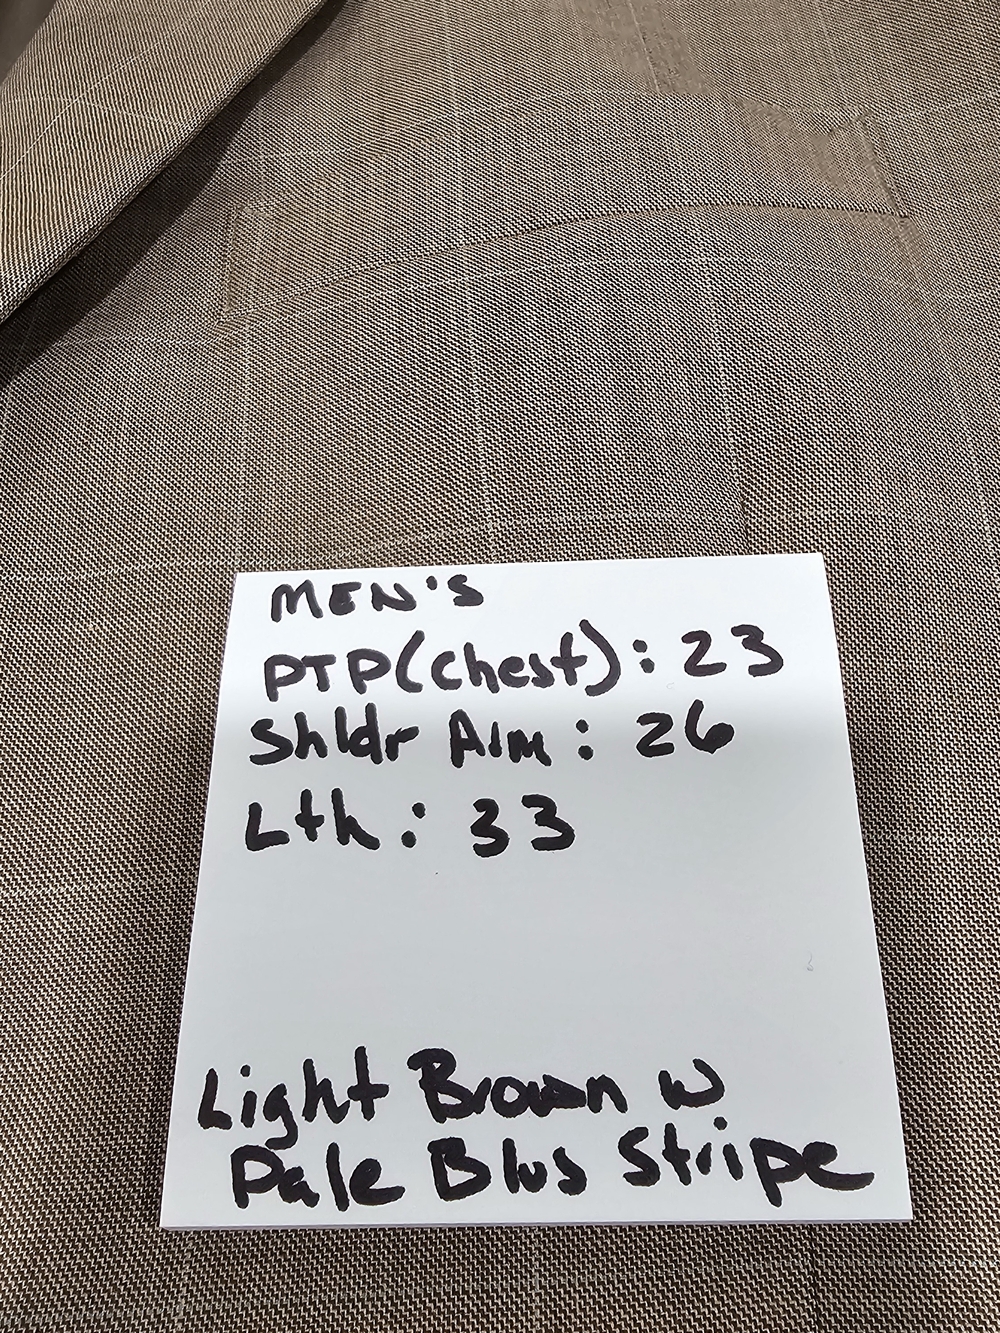 MEN'S
PTP(Chest): 23
Shldr Arm: 26
Lth: 33
Light Brown w
Pale Blue Stripe